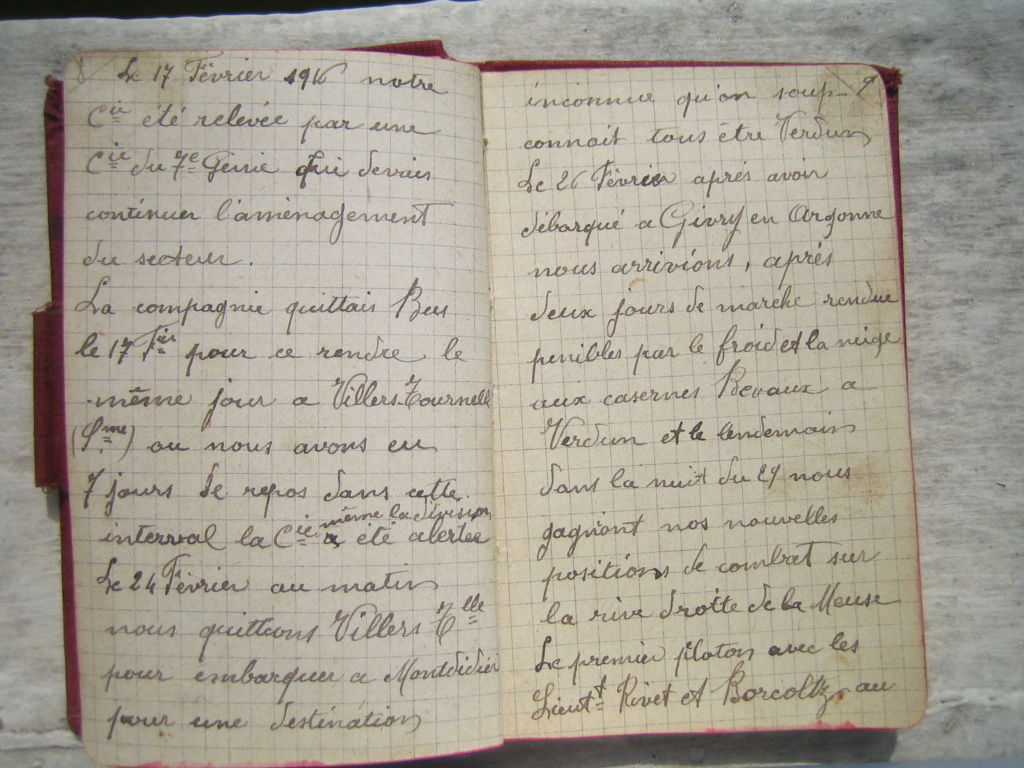 8
Le 17 Février 1916 notre
Cie été relevée par une
Cie du 7e Génie qui devais
continuer l'aménagement
du secteur.
La compagnie quittais Bus
le 17 Fier pour ce rendre le
même jour a Villers-Tournelle
(Sme) ou nous avons eu
7 jours de repos dans cette
même la division
interval la Cie a été alertée
Le 24 Février au matin
nous quittions Villers Tlle
pour embarquer a Montdidier
pour une destination
9
inconnue qu'on soup-
connait tous être Verdun
Le 26 Février aprés avoir
débarqué a Givry en Argonne
nous arrivions, aprés
deux jours de marche rendue
penibles par le froid et la neige
aux casernes Bevaux a
Verdun et le lendemain
dans la nuit du 27 nous
gagniont nos nouvelles
positions de combret sur
la rive drotte de la Meuse
Le premier ploton avec les
Lieutt Rivet et Borcoltz, au